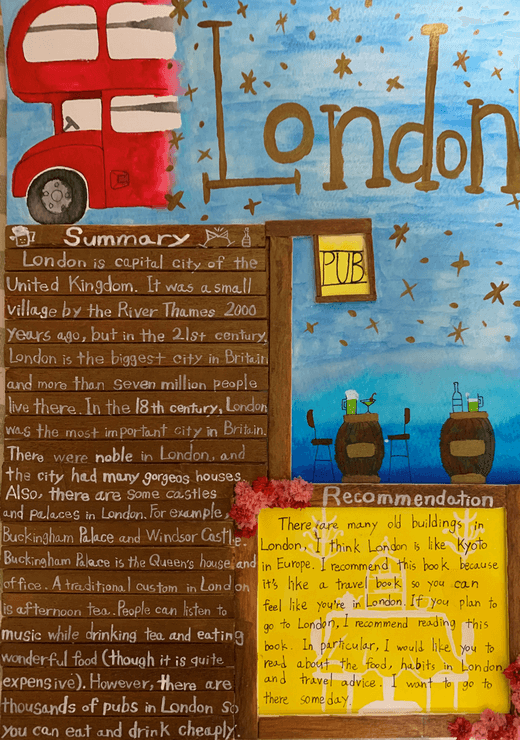 London
PUB
Summary
London is capital city of the
United Kingdom. It was a small
village by the River Thames 2000
years ago, but in the 21st century,
London is the biggest city in Britain
and more than seven million people
live there. In the 18th century, London
was the most important city in Britain.
There were noble in London, and
the city had many gorgeous houses.
Also, there are some castles
and palaces in London. For example,
Buckingham Palace and Windsor Castle.
Buckingham Palace is the Queen's house and
office. A traditional custom in London
is afternoon tea. People can listen to
music while drinking tea and eating
wonderful food (though it is quite
expensive). However, there are
thousands of pubs in London so
you can eat and drink cheaply.
Recommendation
There are many old buildings in
London, I think London is like Kyoto
in Europe. I recommend this book because
it's like a travel book so you can
feel like you're in London. If you plan to
go to London, I recommend reading this
book. In particular, I would like you to
read about the food, habits in London
and travel advice. I want to go to
there someday.